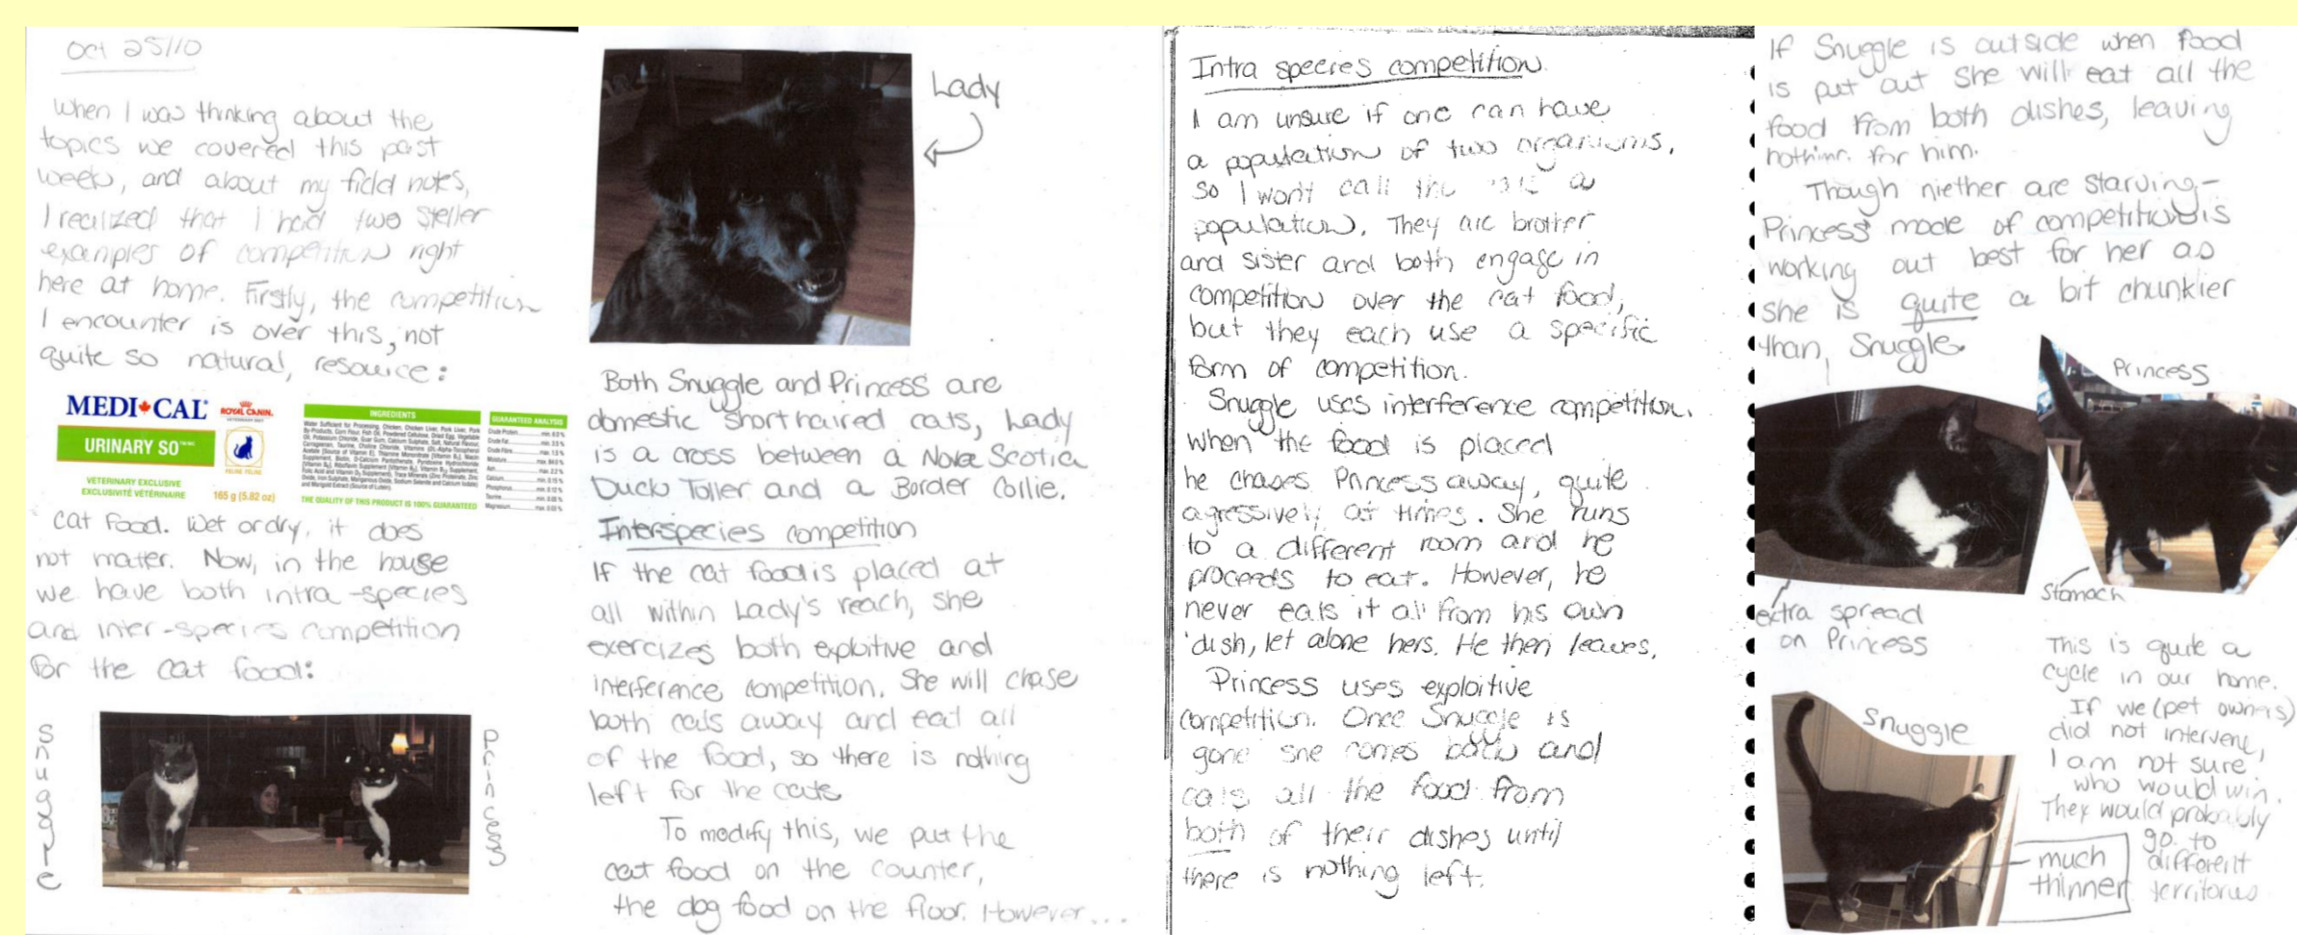 Oct 25/10
When I was thinking about the
topics we covered this past
week, and about my field notes,
I realized that I had two steller
examples of competition right
here at home. Firstly, the competition
I encounter is over this, not
quite so natural, resource:
MEDI CAL
ROYAL CANIN
URINARY SO
VETERINARY EXCLUSIVE
EXCLUSIVITÉ VÉTÉRINAIRE
165 g (5.82 oz)
INGREDIENTS
GUARANTEED ANALYSIS
THE QUALITY OF THIS PRODUCT IS 100% GUARANTEED
cat food. Wet or dry, it does
not matter. Now, in the house
we have both intra-species
and inter-species competition
for the cat food:
Snuggle
Princess
Lady
Both Snuggle and Princess are
domestic shorthaired cats, Lady
is a cross between a Nova Scotia
Duck Toller and a Border Collie.
Interspecies competition
If the cat food is placed at
all within Lady's reach, she
exercizes both exploitive and
interference competition. She will chase
both cats away and eat all
of the food, so there is nothing
left for the cats
To modify this, we put the
cat food on the counter,
the dog food on the floor. However...
Intra species competition
I am unsure if one can have
a population of two organisms,
so I won't call the cats a
population. They are brother
and sister and both engage in
competition over the cat food,
but they each use a specific
form of competition.
Snuggle uses interference competition.
When the food is placed
he chases Princess away, quite
agressively at times. She runs
to a different room and he
proceeds to eat. However, he
never eats it all from his own
dish, let alone hers. He then leaves.
Princess uses exploitive
competition. Once Snuggle is
gone she comes back and
eats all the food from
both of their dishes until
there is nothing left.
If Snuggle is outside when food
is put out she will eat all the
food from both dishes, leaving
nothing for him.
Though niether are starving-
Princess' mode of competition is
working out best for her as
she is quite a bit chunkier
than Snuggle.
Princess
extra spread
on Princess
Stomach
Snuggle
much
thinner
This is quite a
cycle in our home.
If we (pet owners)
did not intervene,
I am not sure
who would win.
They would probably
go to
different
territories